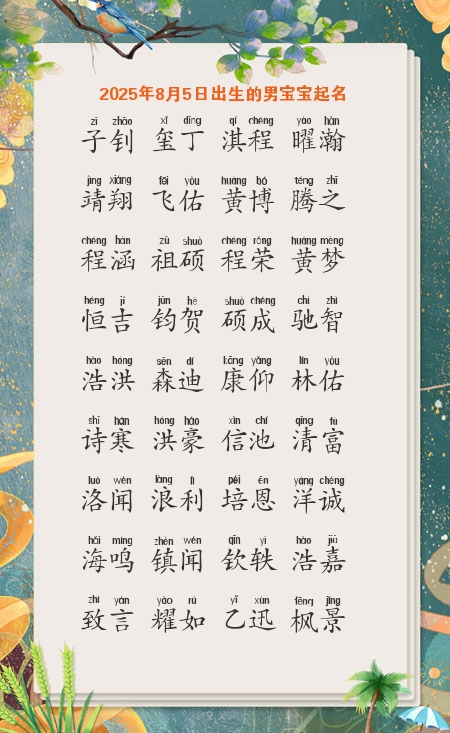 2025年8月5日出生的男宝宝起名
zǐ zhāo xǐ dīng qí chéng yào hàn
子钊 玺丁 淇程 曜瀚
jìng xiáng fēi yòu huáng bó téng zhī
靖翔 飞佑 黄博 腾之
chéng hán zǔ shuò chéng róng huáng mèng
程涵 祖硕 程荣 黄梦
héng jí jūn hè shuò chéng chí zhì
恒吉 钧贺 硕成 驰智
hào hóng sēn dí kāng yǎng lín yòu
浩洪 森迪 康仰 林佑
shī hán hóng háo xìn chí qīng fù
诗寒 洪豪 信池 清富
luò wén làng lì péi ēn yáng chéng
洛闻 浪利 培恩 洋诚
hǎi míng zhèn wén qīn yì hào jiā
海鸣 镇闻 钦轶 浩嘉
zhì yán yào rú yǐ xùn fēng jǐng
致言 耀如 乙迅 枫景